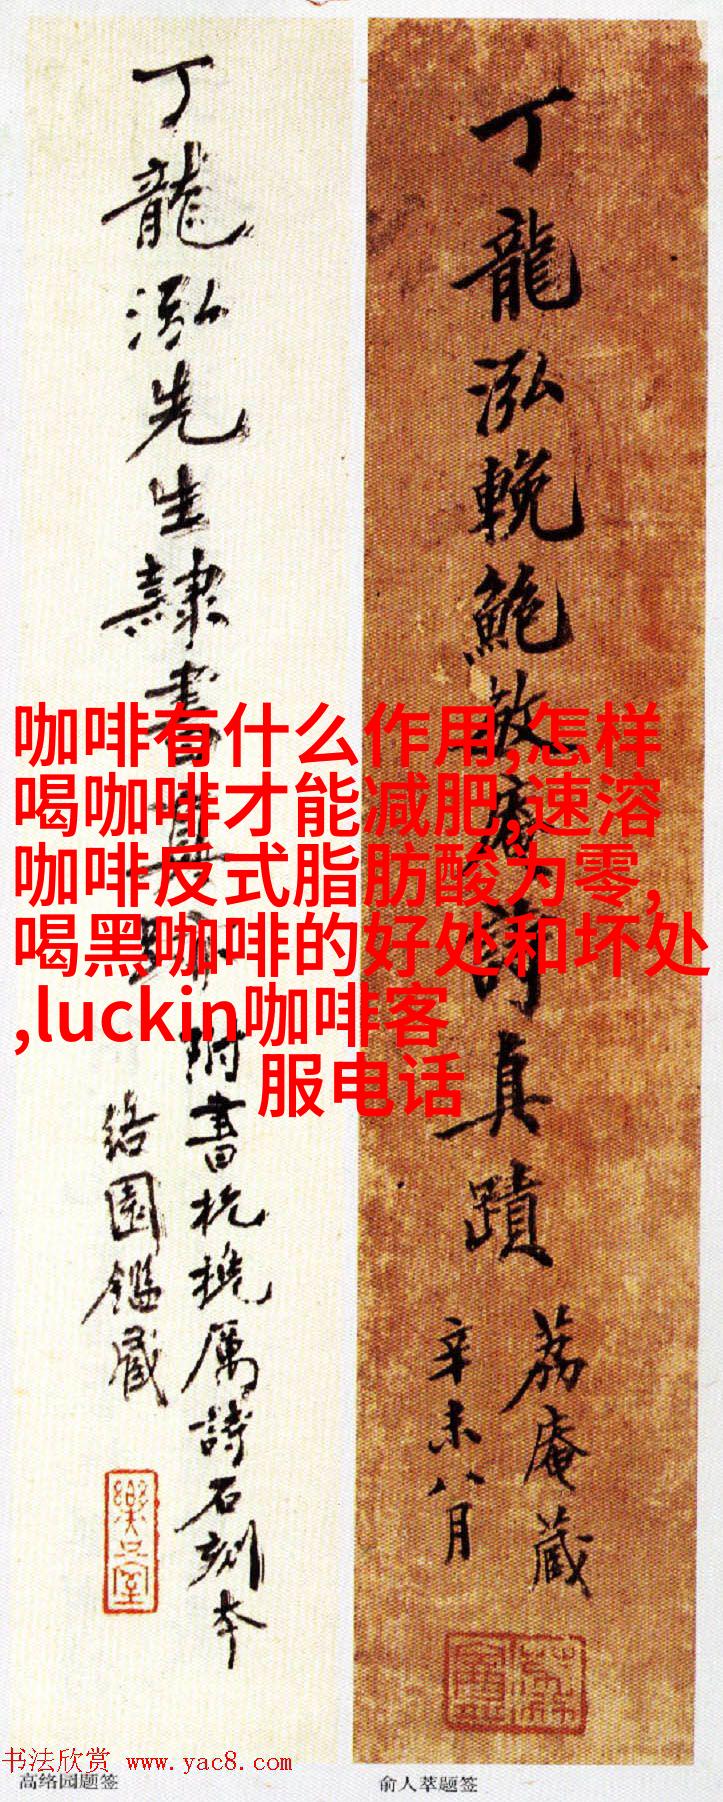 丁龍泓先生隸書真跡
附書杭換厲詩石刻本
絡園鑑藏
樂只室
丁龍泓輓鮑敏庵詩真蹟
荔庵藏
辛未八月
咖啡有什么作用,怎样
喝咖啡才能减肥,速溶
咖啡反式脂肪酸为零,
喝黑咖啡的好处和坏处
,luckin咖啡客
服电话
书法欣赏 www.yac8.com
高络园题签
俞人萃题签